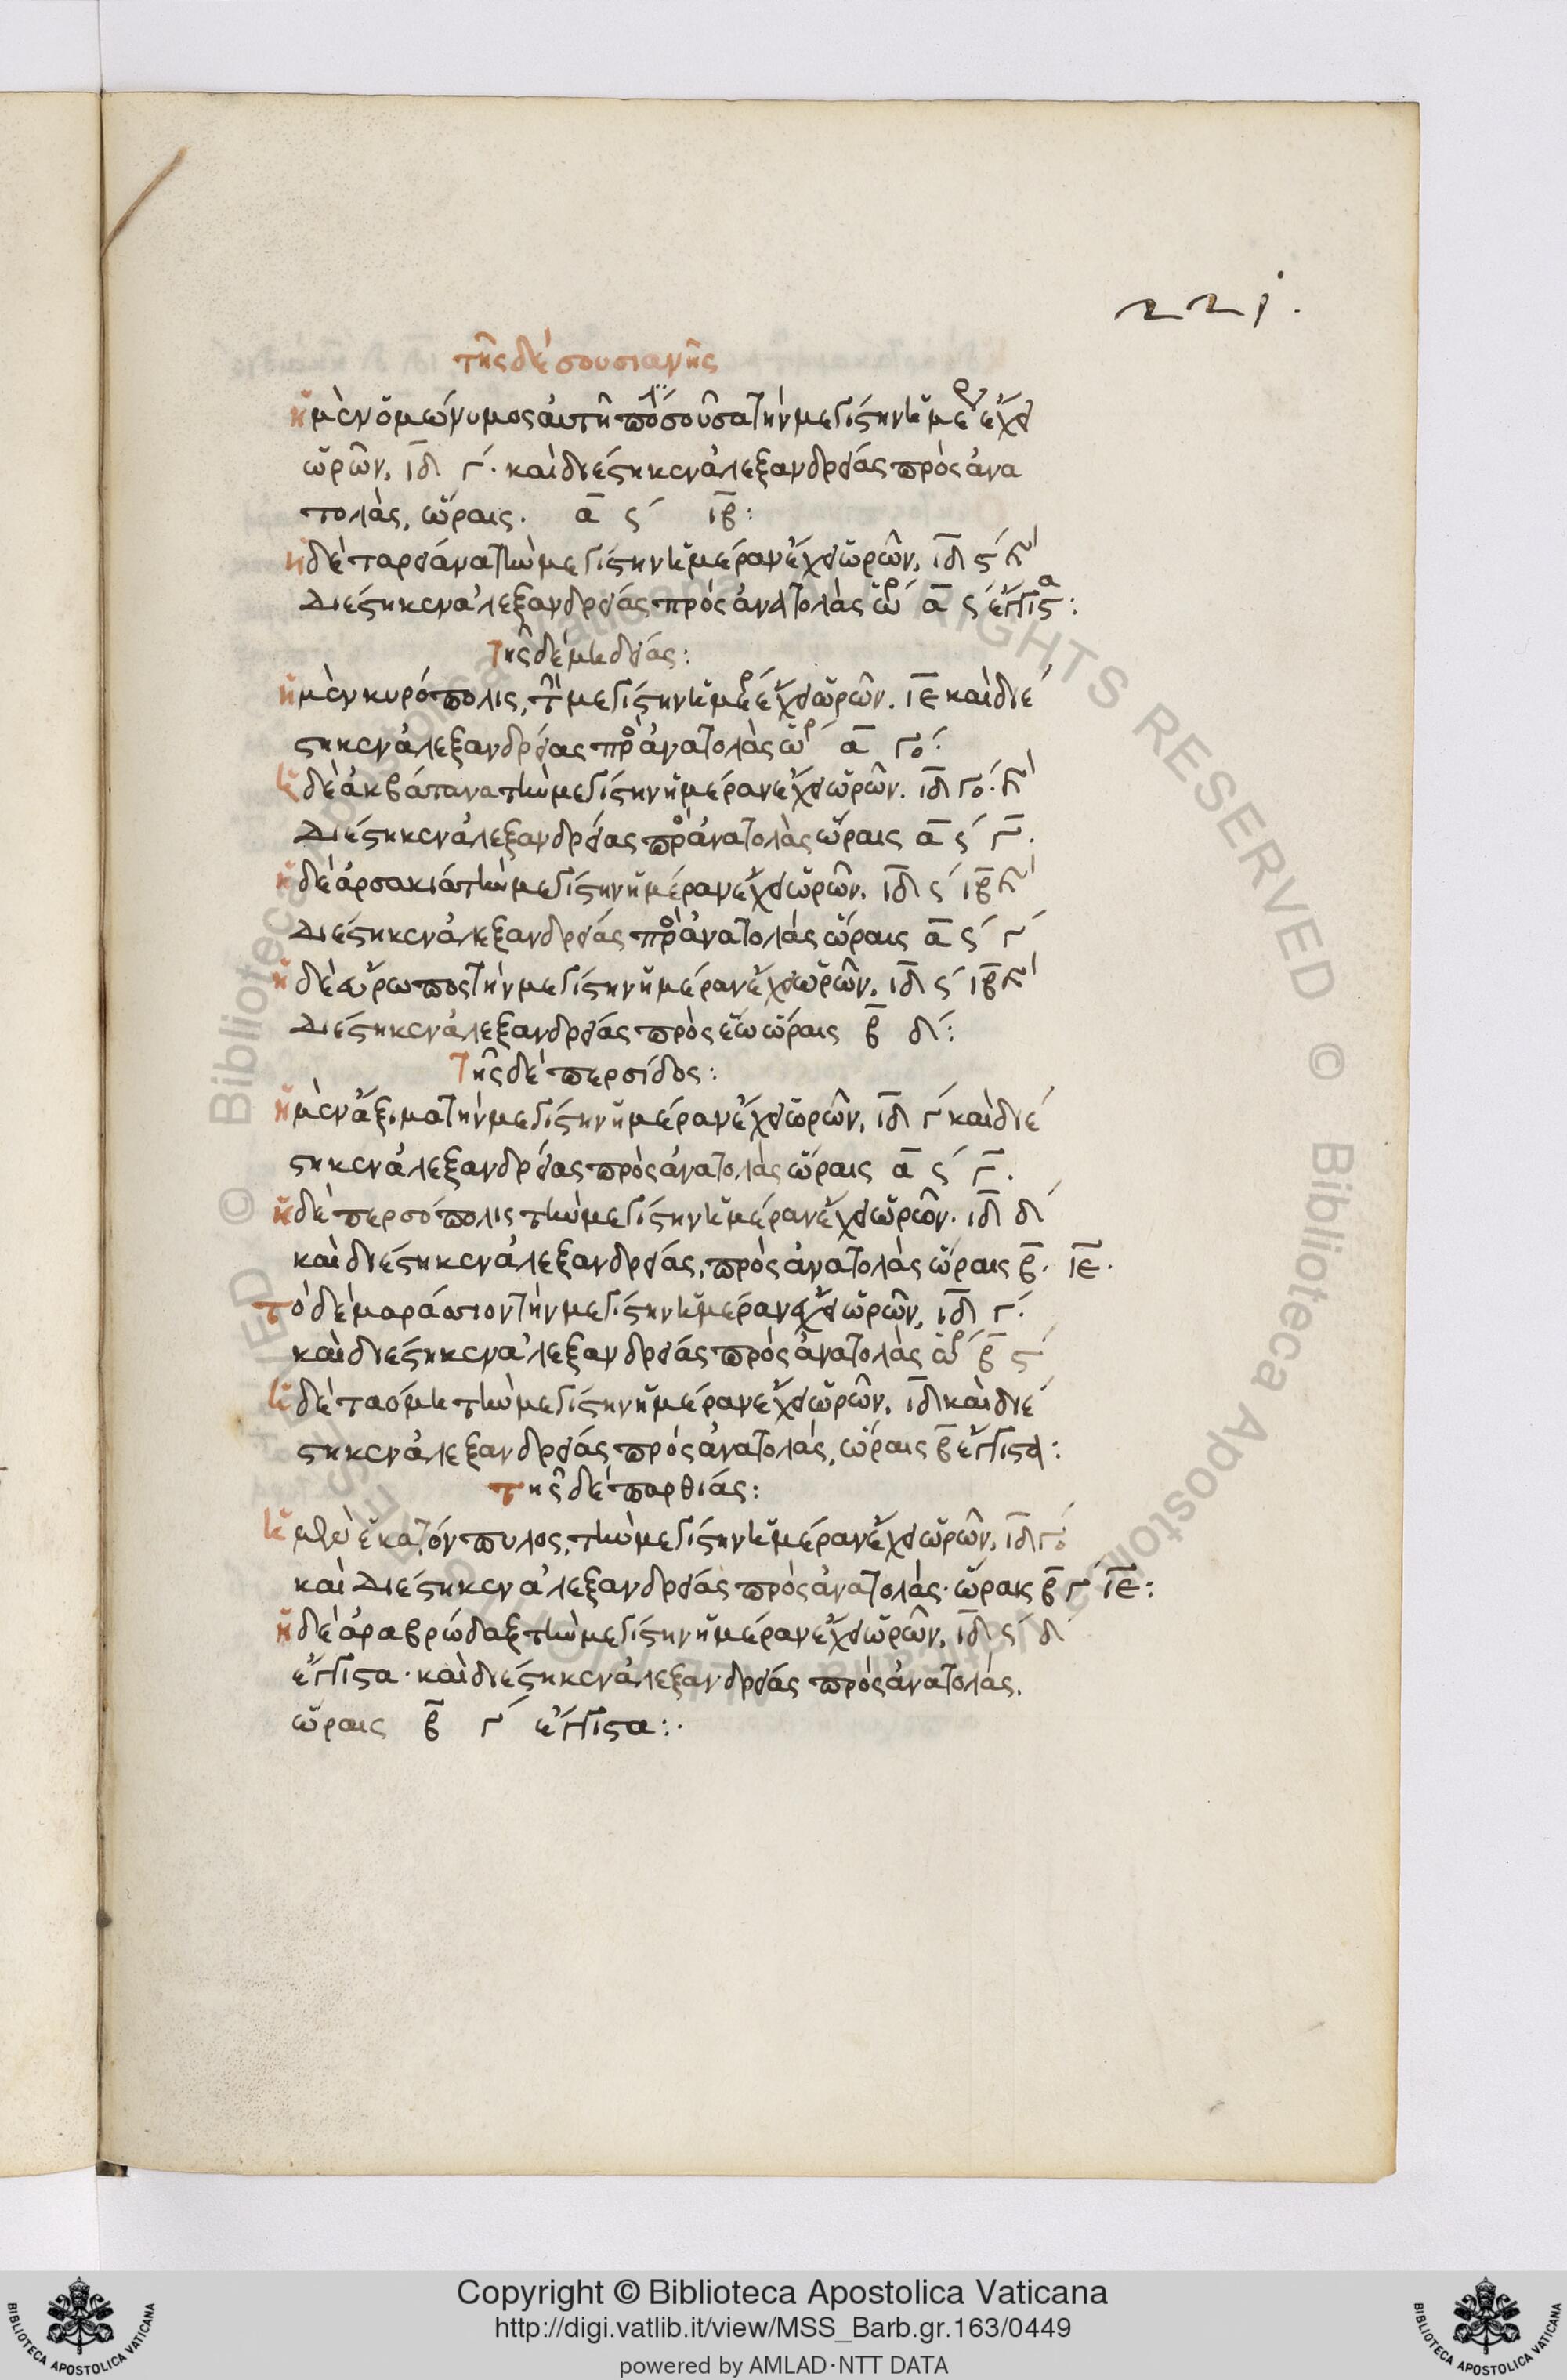 221.
τῆς δὲ σουσιανῆς
ἡ μὲν ὁμώνυμος αὐτῆ πόλ σοῦσα τὴν μεγίστην ἡμερ ἔχει
ὡρῶν. ιδ γ΄. καὶ διέστηκεν ἀλεξανδρείας πρὸς ἀνα
τολὰς, ὥραις. α ϛ΄ ιβ:
ἡ δὲ ταρείανα τὴν μεγίστην ἡμέραν ἔχει ὡρῶν, ιδ ϛ΄ κ
διέστηκεν ἀλεξανδρείας πρὸς ἀνατολὰς ὡρ α ϛ΄ ἔγγιστα:
τῆς δὲ μηδείας:
ἡ μὲν κυρόπολις, τὴν μεγίστην ἡμερ ἔχει ὡρῶν. ιε καὶ διέ
στηκεν ἀλεξανδρείας πρὸ ἀνατολὰς ὡρ α γο:
ἡ δὲ ἀκβάτανα τὴν μεγίστην ἡμέραν ἔχει ὡρῶν. ιδ γο. κ
διέστηκεν ἀλεξανδρείας πρὸ ἀνατολὰς ὥραις α ϛ΄ γ.
ἡ δὲ ἀρσακία τὴν μεγίστην ἡμέραν ἔχει ὡρῶν. ιδ ϛ΄ ιβ κ
διέστηκεν ἀλεξανδρείας πρὸ ἀνατολὰς ὥραις α ϛ΄ γ΄
ἡ δὲ εὔρωπος τὴν μεγίστην ἡμέραν ἔχει ὡρῶν, ιδ ϛ΄ ιβ κ
διέστηκεν ἀλεξανδρείας πρὸς ἕω ὥραις β δ΄:
τῆς δὲ περσίδος:
ἡ μὲν ἄξιμα τὴν μεγίστην ἡμέραν ἔχει ὡρῶν, ιδ γ΄ καὶ διέ
στηκεν ἀλεξανδρείας πρὸς ἀνατολὰς ὥραις α ϛ΄ γ.
ἡ δὲ περσόπολις τὴν μεγίστην ἡμέραν ἔχει ὡρῶν. ιδ δ΄
καὶ διέστηκεν ἀλεξανδρείας, πρὸς ἀνατολὰς ὥραις β. ιε.
τὸ δὲ μαράσιον τὴν μεγίστην ἡμέραν ἔχει ὡρῶν, ιδ γ΄.
καὶ διέστηκεν ἀλεξανδρείας πρὸς ἀνατολὰς ὡρ β ϛ΄
ἡ δὲ ταόμη τὴν μεγίστην ἡμέραν ἔχει ὡρῶν, ιδ καὶ διέ
στηκεν ἀλεξανδρείας πρὸς ἀνατολὰς, ὥραις β ἔγγιστα:
τῆς δὲ παρθίας:
ἡ μὲν ἑκατόνπυλος, τὴν μεγίστην ἡμέραν ἔχει ὡρῶν, ιδ γο
καὶ διέστηκεν ἀλεξανδρείας πρὸς ἀνατολὰς. ὥραις β γ΄ ιε:
ἡ δὲ ἀραβρώδαξ τὴν μεγίστην ἡμέραν ἔχει ὡρῶν, ιδ ϛ΄ δ΄
ἔγγιστα. καὶ διέστηκεν ἀλεξανδρείας πρὸς ἀνατολὰς,
ὥραις β γ΄ ἔγγιστα:.
Copyright © Biblioteca Apostolica Vaticana
http://digi.vatlib.it/view/MSS_Barb.gr.163/0449
powered by AMLAD·NTT DATA